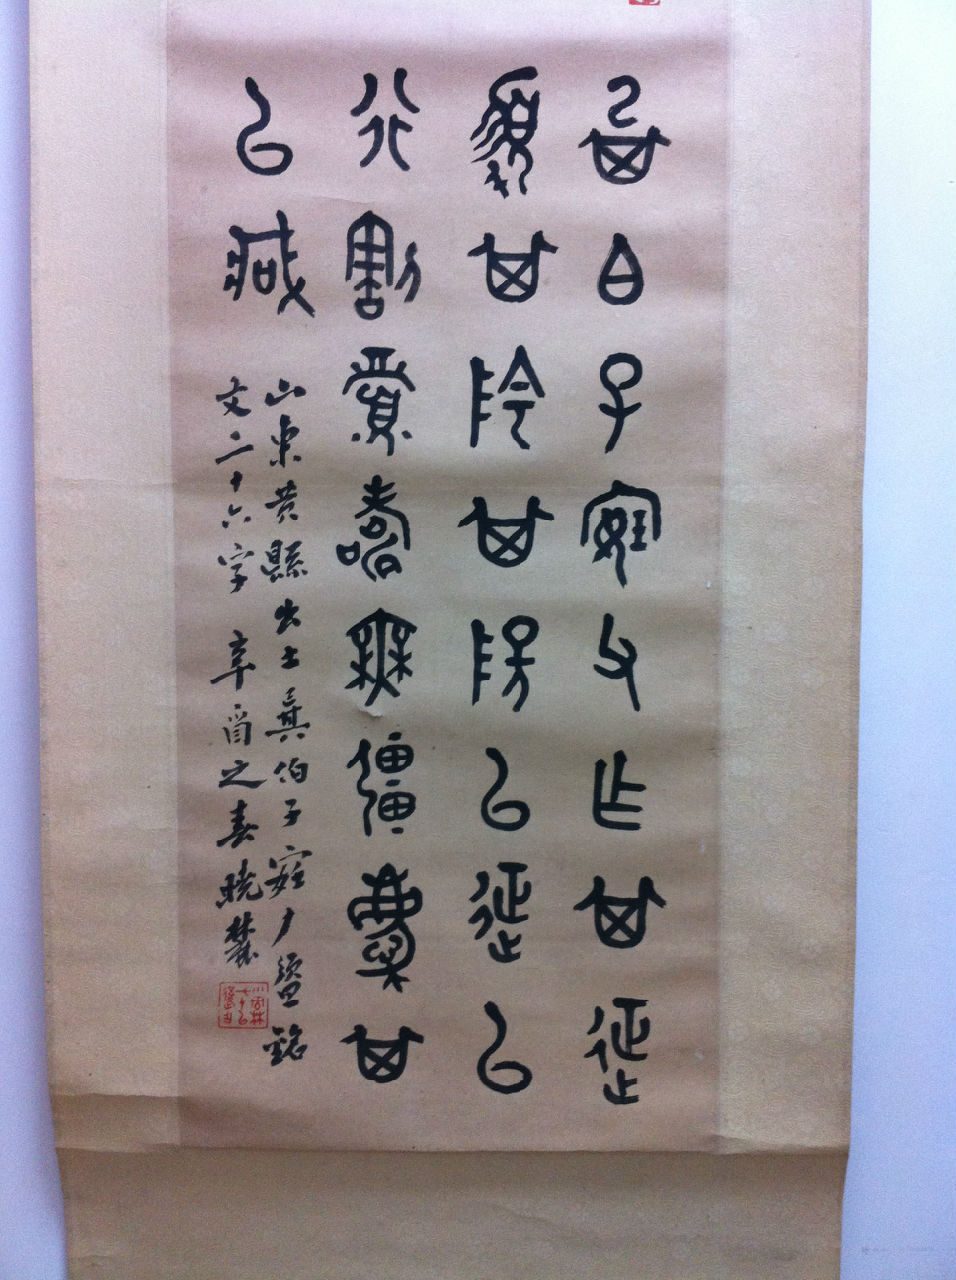 㠱白子㝨父乍其征
盨其陰其陽以征以
行割眉壽無疆慶其
以臧
山東黄縣出土㠱伯子㝨父盨銘
文二十六字 辛酉之春曉麓